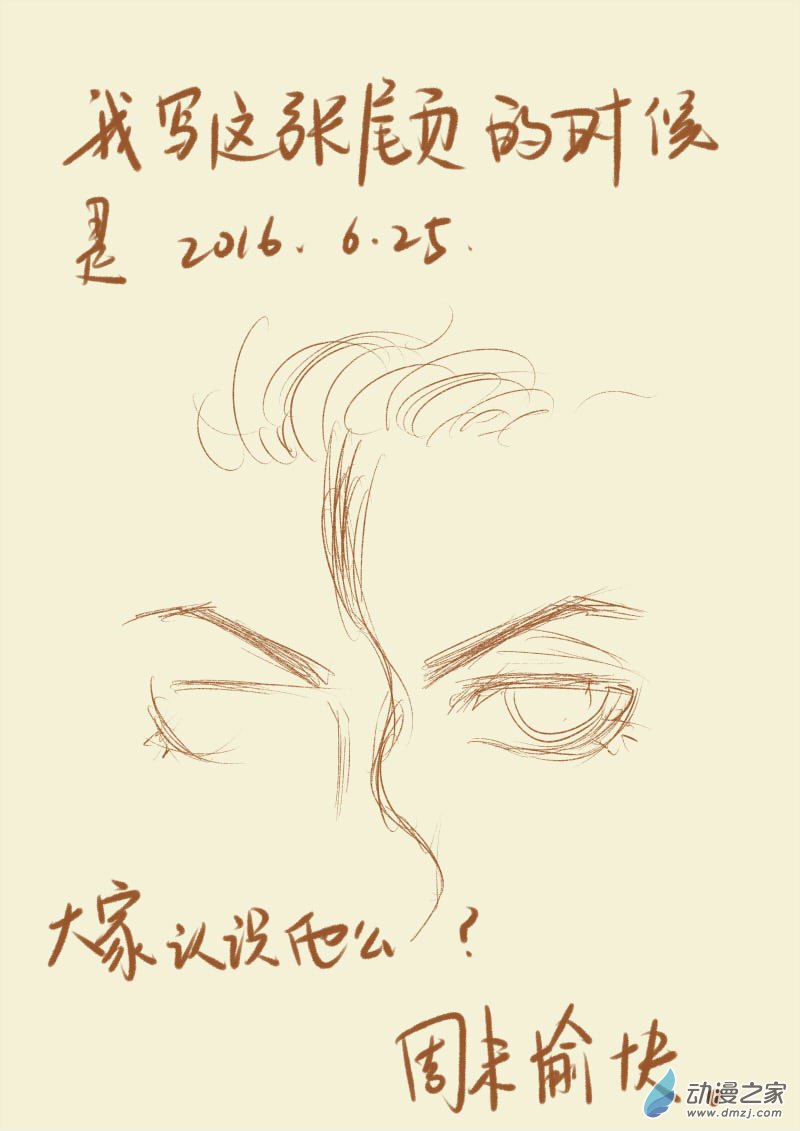 我写这张尾页的时候
是 2016.6.25.
大家认识他么？
周末愉快
动漫之家
www.dmzj.com